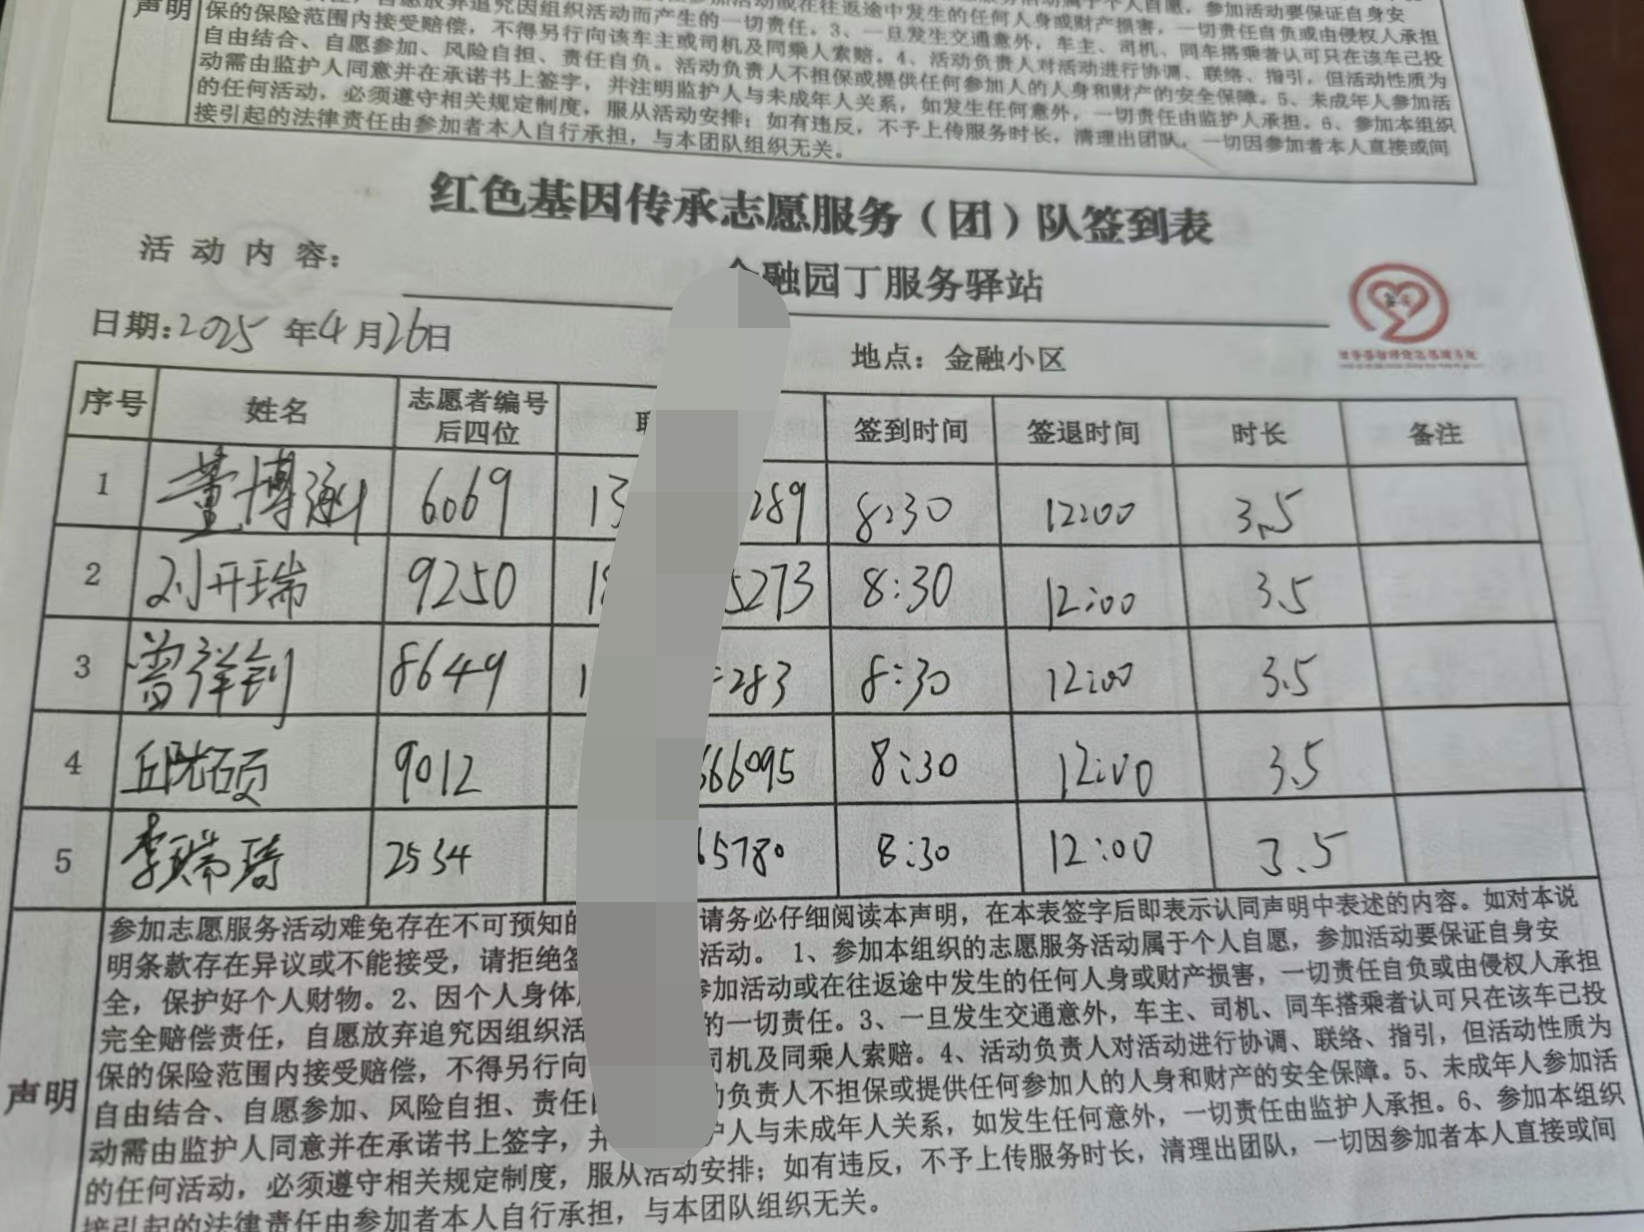 声明
保的保险范围内接受赔偿，不得另行向该车主或司机及同乘人索赔。3、一旦发生交通意外，车主、司机、同车搭乘者认可只在该车已投
自由结合、自愿参加、风险自担、责任自负。活动负责人不担保或提供任何参加人的人身和财产的安全保障。5、未成年人参加活
动需由监护人同意并在承诺书上签字，并注明监护人与未成年人关系，如发生任何意外，一切责任由监护人承担。6、参加本组织
的任何活动，必须遵守相关规定制度，服从活动安排；如有违反，不予上传服务时长，清理出团队，一切因参加者本人直接或间
接引起的法律责任由参加者本人自行承担，与本团队组织无关。
红色基因传承志愿服务（团）队签到表
活动内容：
融园丁服务驿站
日期：2025年4月26日
地点：金融小区
序号 姓名 志愿者编号后四位 签到时间 签退时间 时长 备注
1 董博涵 6069 13 289 8:30 12:00 3.5
2 刘开瑞 9250 18 5273 8:30 12:00 3.5
3 曾祥钊 8649 1 283 8:30 12:00 3.5
4 丘 硕 9012 666095 8:30 12:00 3.5
5 李瑞琦 2534 65780 8:30 12:00 3.5
声明
参加志愿服务活动难免存在不可预知的 请务必仔细阅读本声明，在本表签字后即表示认同声明中表述的内容。如对本说
明条款存在异议或不能接受，请拒绝签 活动。1、参加本组织的志愿服务活动属于个人自愿，参加活动要保证自身安
全，保护好个人财物。2、因个人身体 参加活动或在往返途中发生的任何人身或财产损害，一切责任自负或由侵权人承担
完全赔偿责任，自愿放弃追究因组织活 的一切责任。3、一旦发生交通意外，车主、司机、同车搭乘者认可只在该车已投
保的保险范围内接受赔偿，不得另行向 司机及同乘人索赔。4、活动负责人对活动进行协调、联络、指引，但活动性质为
自由结合、自愿参加、风险自担、责任 动负责人不担保或提供任何参加人的人身和财产的安全保障。5、未成年人参加活
动需由监护人同意并在承诺书上签字，并 护人与未成年人关系，如发生任何意外，一切责任由监护人承担。6、参加本组织
的任何活动，必须遵守相关规定制度，服从活动安排；如有违反，不予上传服务时长，清理出团队，一切因参加者本人直接或间
接引起的法律责任由参加者本人自行承担，与本团队组织无关。